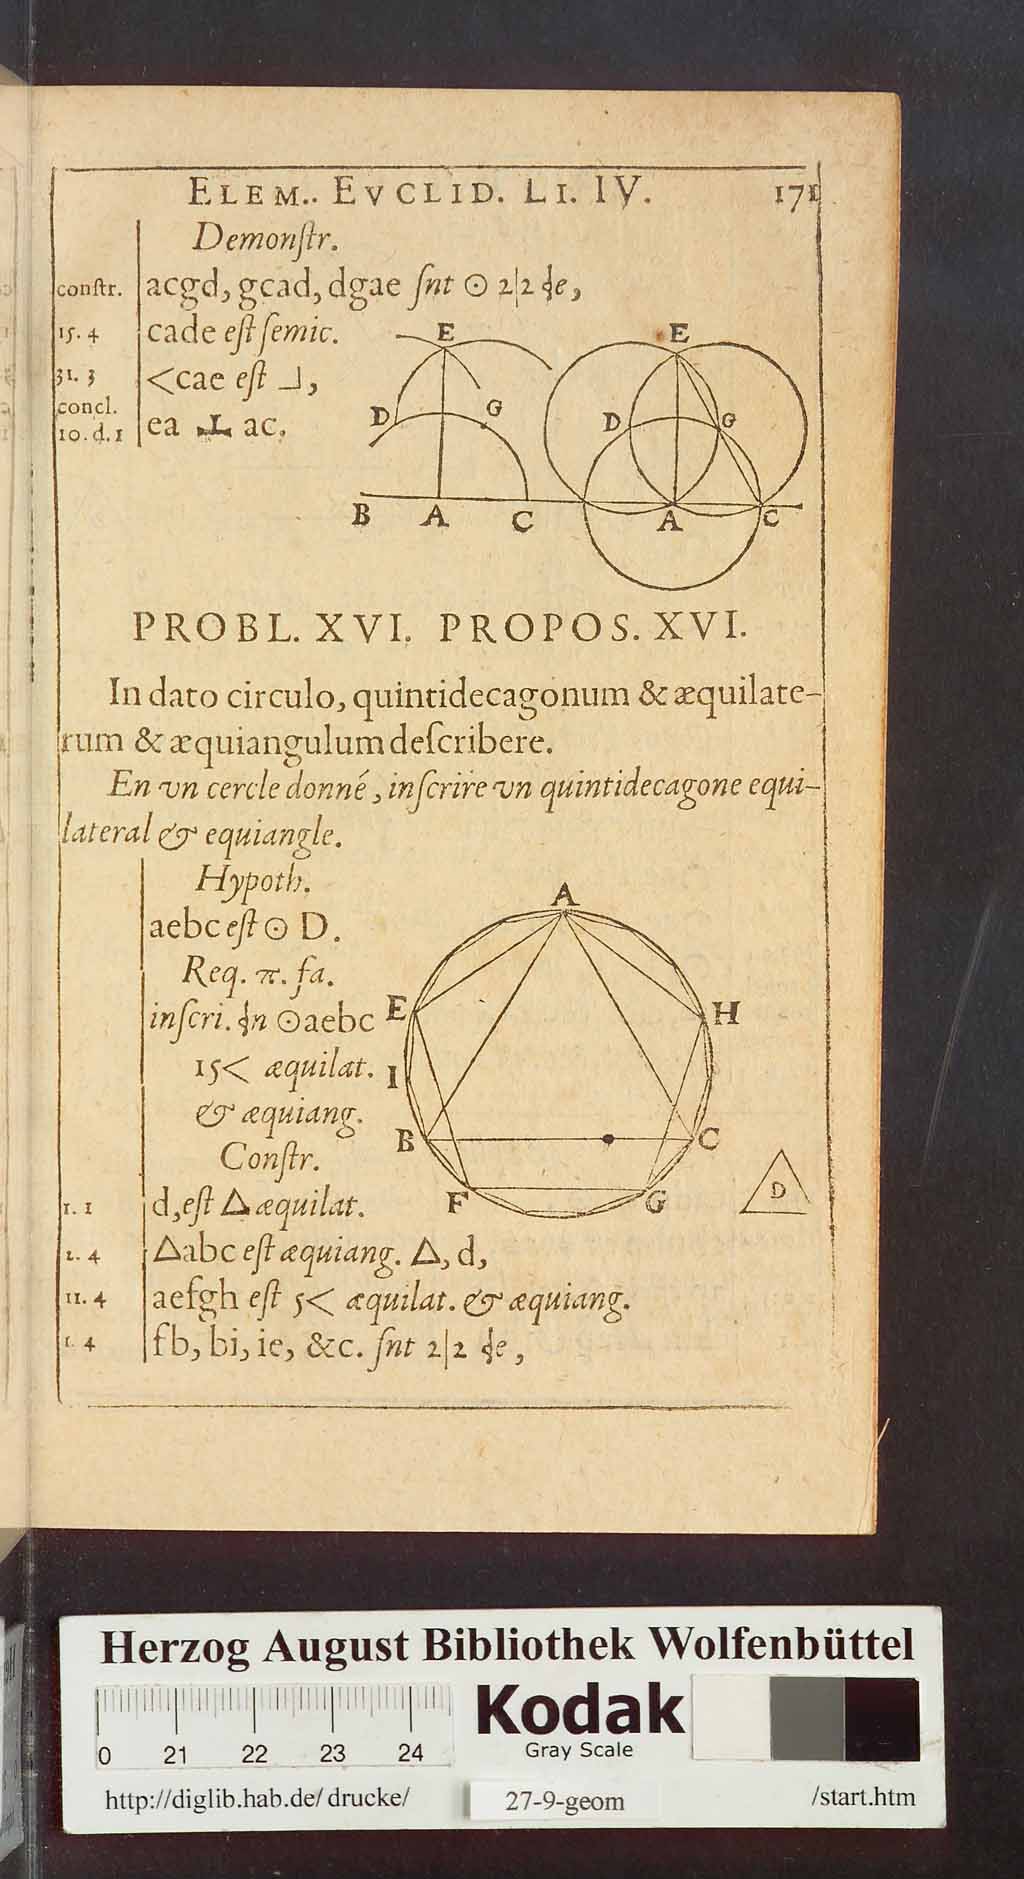 ELEM.. EVCLID. LI. IV. 171
Demonſtr.
conſtr. acgd, gcad, dgae ſnt ⊙ 2|2 de,
15. 4 cade eſt ſemic.
31. 3 <cae eſt ⅃,
concl.
10. d. 1 ea ⊥ ac.
E
D
G
B A C
E
D
G
A
C
PROBL. XVI. PROPOS. XVI.
In dato circulo, quintidecagonum & æquilate-
rum & æquiangulum deſcribere.
En vn cercle donné, inſcrire vn quintidecagone equi-
lateral & equiangle.
Hypoth.
aebc eſt ⊙ D.
Req. π. fa.
inſcri. dn ⊙aebc
15< æquilat.
& æquiang.
Conſtr.
1. 1 d, eſt △ æquilat.
2. 4 △abc eſt æquiang. △, d,
11. 4 aefgh eſt 5< æquilat. & æquiang.
1. 4 fb, bi, ie, &c. ſnt 2|2 de,
A
E
H
I
B
C
F
G
D
Herzog August Bibliothek Wolfenbüttel
Kodak
Gray Scale
0 21 22 23 24
http://diglib.hab.de/ drucke/ 27-9-geom /start.htm